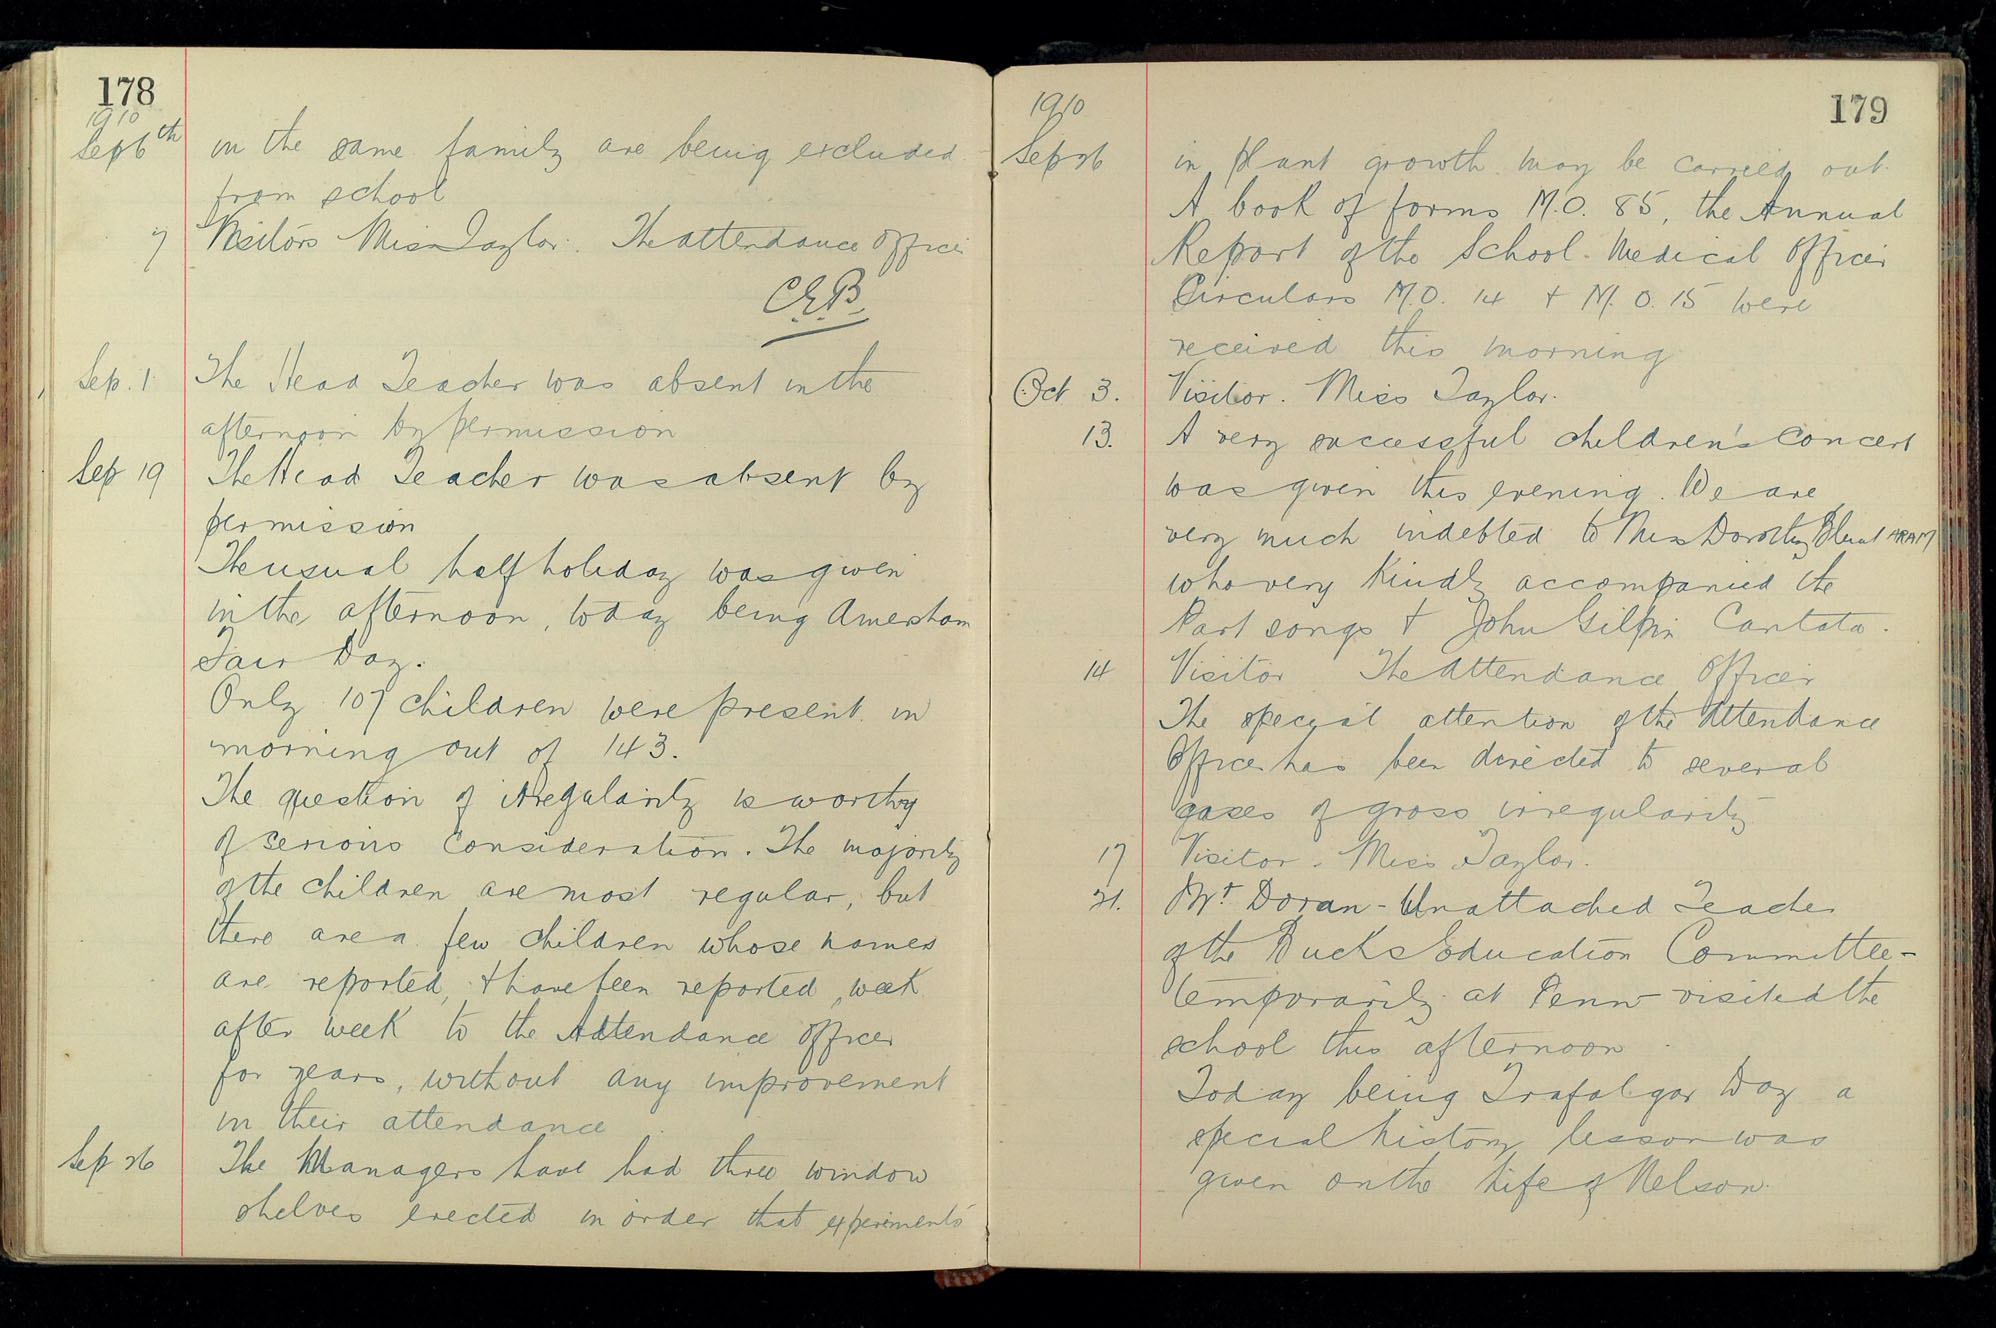 178
1910
Sep 6th in the same family are being excluded
from school
7 Visitors Miss Taylor. The attendance officer
C.E.B.
Sep. 1 The Head Teacher was absent in the
afternoon by permission
Sep 19 The Head Teacher was absent by
permission
The usual half holiday was given
in the afternoon, today being Amersham
Fair Day.
Only 107 children were present in
morning out of 143.
The question of irregularity is worthy
of serious consideration. The majority
of the children are most regular, but
there are a few children whose names
are reported, & have been reported, week
after week to the Attendance Officer
for years, without any improvement
in their attendance
Sep 26 The Managers have had three window
shelves erected in order that experiments
179
1910
Sep 26 in plant growth may be carried out.
A book of forms M.O. 85, the Annual
Report of the School Medical Officer
Circulars M.O. 14 & M.O. 15 were
received this morning
Oct 3. Visitor. Miss Taylor.
13. A very successful children's concert
was given this evening. We are
very much indebted to Miss Dorothy ARAM
who very kindly accompanied the
Part songs & John Gilpin Cantata.
14 Visitor The Attendance Officer
The special attention of the Attendance
Officer has been directed to several
cases of gross irregularity
17 Visitor. Miss Taylor.
21. Mr Doran - Unattached Teacher
of the Bucks Education Committee -
temporarily at Penn - visited the
school this afternoon.
Today being Trafalgar Day a
special history lesson was
given on the Life of Nelson.